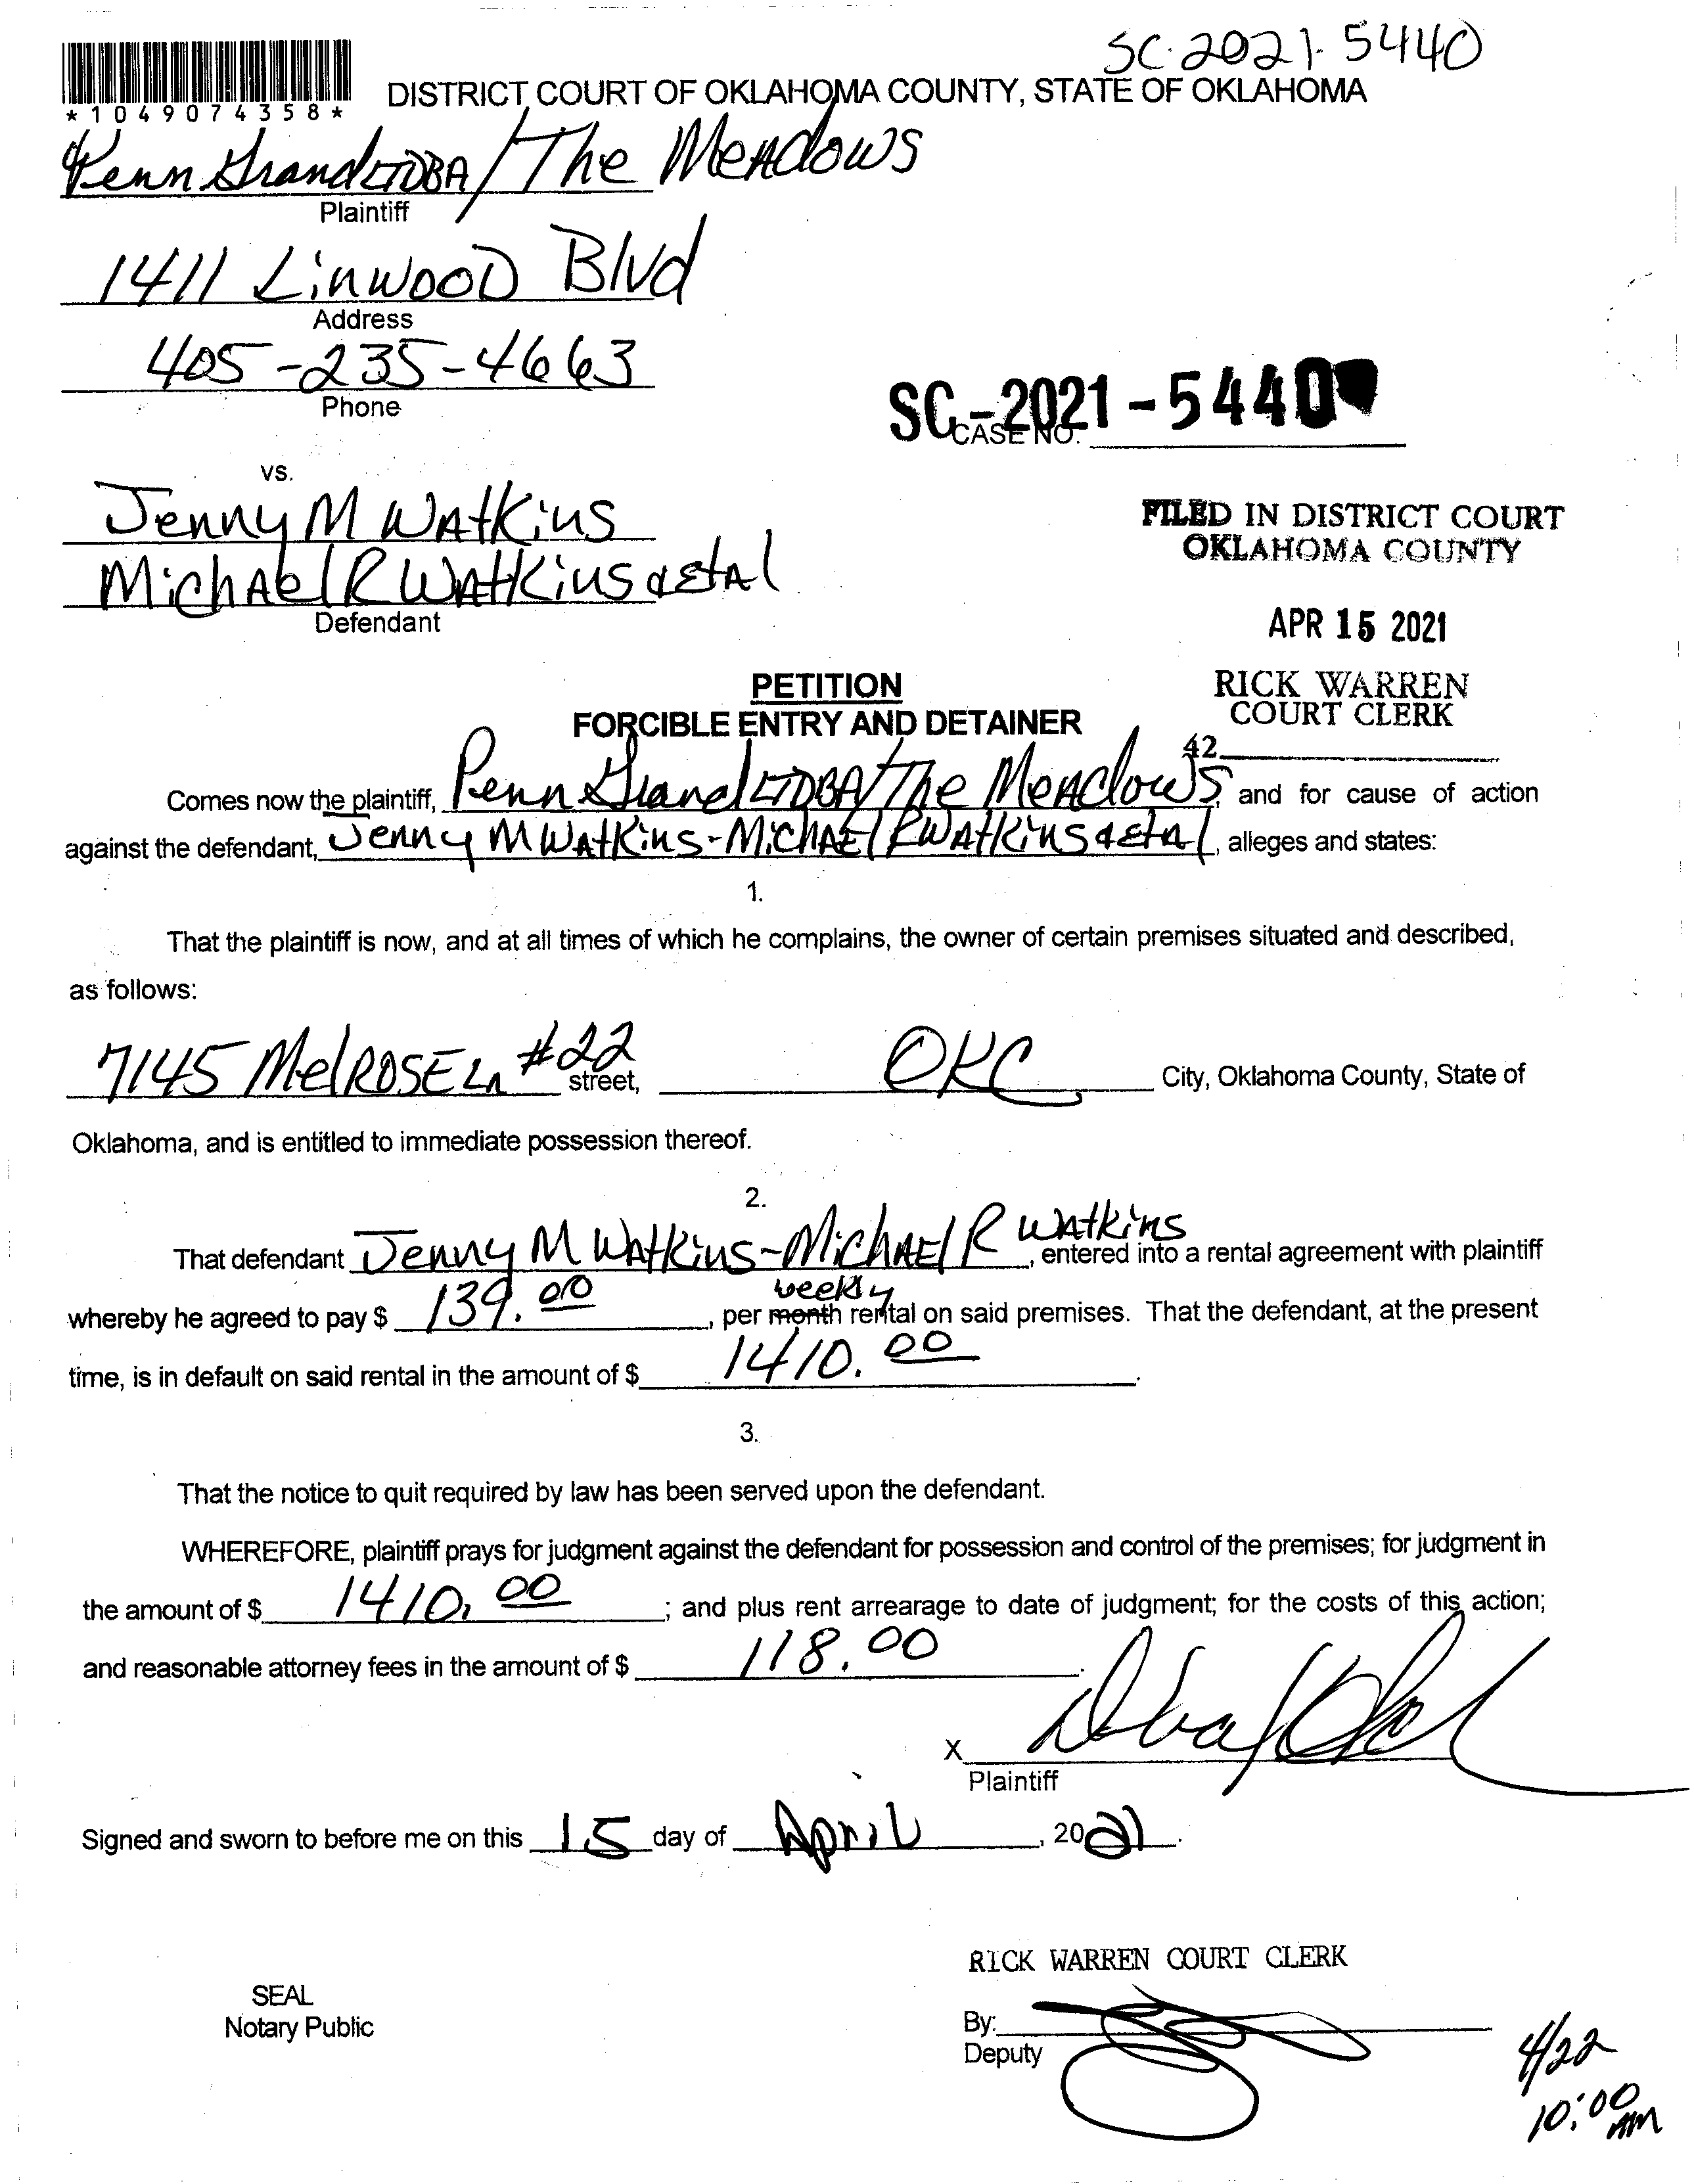 SC-2021-5440
*1049074358*
DISTRICT COURT OF OKLAHOMA COUNTY, STATE OF OKLAHOMA
Penn Grand LTDBA/The Meadows
Plaintiff
1411 Linwood Blvd
Address
405-235-4663
Phone
SC-2021-5440
CASE NO.
vs.
Jenny M Watkins
Michael R Watkins &etal
Defendant
FILED IN DISTRICT COURT
OKLAHOMA COUNTY
APR 15 2021
RICK WARREN
COURT CLERK
42
PETITION
FORCIBLE ENTRY AND DETAINER
Comes now the plaintiff, Penn Grand LTDBA/The Meadows, and for cause of action
against the defendant, Jenny M Watkins-Michael R Watkins &etal, alleges and states:
1.
That the plaintiff is now, and at all times of which he complains, the owner of certain premises situated and described,
as follows:
7145 Melrose Ln #22 street, OKC City, Oklahoma County, State of
Oklahoma, and is entitled to immediate possession thereof.
2.
That defendant Jenny M Watkins-Michael R Watkins, entered into a rental agreement with plaintiff
weekly
whereby he agreed to pay $ 139.00, per month rental on said premises. That the defendant, at the present
time, is in default on said rental in the amount of $ 1410.00.
3.
That the notice to quit required by law has been served upon the defendant.
WHEREFORE, plaintiff prays for judgment against the defendant for possession and control of the premises; for judgment in
the amount of $ 1410.00; and plus rent arrearage to date of judgment; for the costs of this action;
and reasonable attorney fees in the amount of $ 118.00.
X
Plaintiff
Signed and sworn to before me on this 15 day of April, 2021.
RICK WARREN COURT CLERK
SEAL
Notary Public
By:
Deputy
4/22
10:00 AM